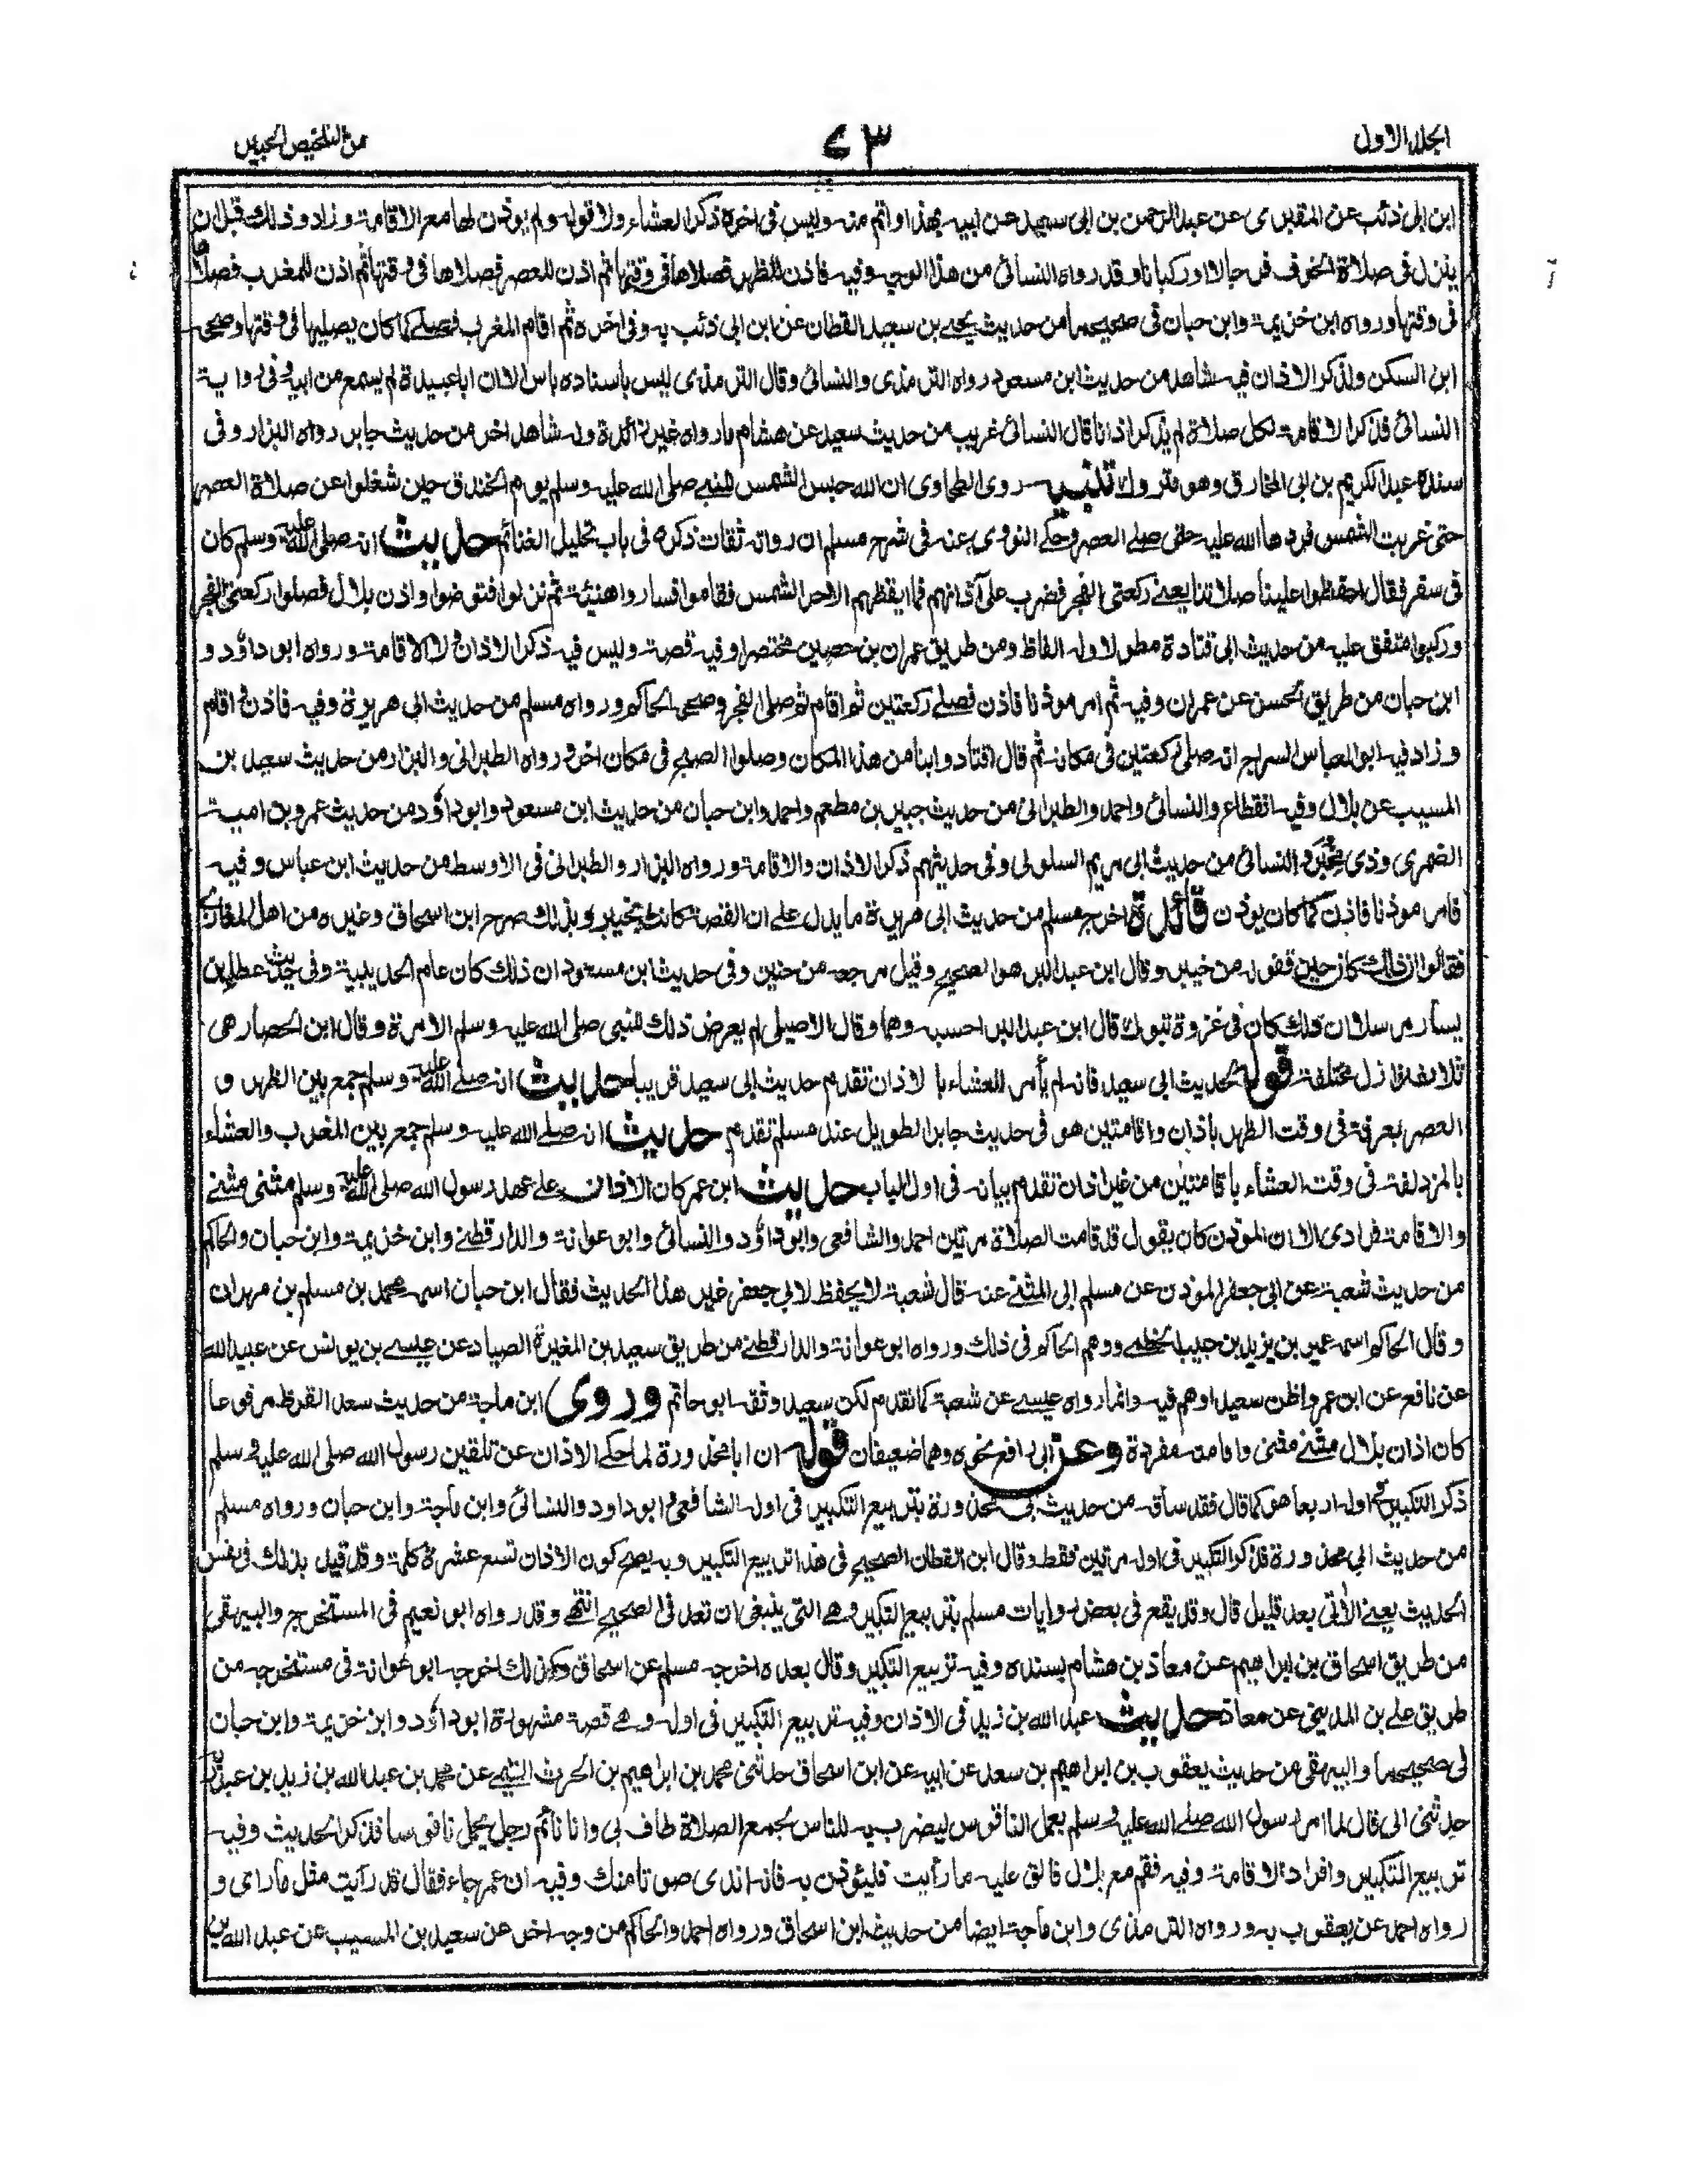 الجلد الاول
٧٣
من التلخيص الحبير
ابن ابى ذئب عن المقبرى عن عبد الرحمن بن ابى سعيد عن ابيه بهذا واتم منه وليس فى اخره ذكر العشاء ولا قوله ولم يوذن لها مع الاقامة وزاد وذلك قبل ان
ينزل فى صلاة الخوف فرجالا او ركبانا وقد رواه النسائى من هذا الوجه وفيه فاذن للظهر فصلاها فى وقتها ثم اذن للعصر فصلاها فى وقتها ثم اذن للمغرب فصلاها
فى وقتها ورواه ابن خزيمة وابن حبان فى صحيحيهما من حديث يحيے بن سعيد القطان عن ابن ابى ذئب به وفى اخره ثم اقام المغرب فصلے كما كان يصليها فى وقتها وصححه
ابن السكن ولذكر الاذان فيه شاهد من حديث ابن مسعود رواه الترمذى والنسائى وقال الترمذى ليس باسناده باس الا ان ابا عبيدة لم يسمع من ابيه وفى رواية
النسائى فذكر الاقامة لكل صلاة لم يذكر اذانا قال النسائى غريب من حديث سعيد عن هشام ما رواه غير زائدة وله شاهد اخر من حديث جابر رواه البزار وفى
سنده عبد الكريم بن ابى المخارق وهو متروك تنبيه روى الطحاوى ان الله حبس الشمس للنبے صلى الله عليه وسلم يوم الخندق حين شغلوا عن صلاة العصر
حتى غربت الشمس فردها الله عليه حتى صلے العصر وحكے النووى عنه فى شرح مسلم ان رواته ثقات ذكره فى باب تحليل الغنائم حديث انه صلى الله عليه وسلم كان
فى سفر فقال احفظوا علينا صلاتنا يعنے ركعتى الفجر فضرب على آذانهم فما ايقظهم الا حر الشمس فقاموا فساروا هنيئة ثم نزلوا فتوضوا واذن بلال فصلوا ركعتى الفجر
وركبوا متفق عليه من حديث ابى قتادة مطولا وله الفاظ ومن طريق عمران بن حصين مختصرا وفيه قصة وليس فيه ذكر الاذان ولا الاقامة ورواه ابو داؤد و
ابن حبان من طريق الحسن عن عمران وفيه ثم امر موذنا فاذن فصلے ركعتين ثم اقام ثم صلى الفجر وصححه الحاكم ورواه مسلم من حديث ابى هريرة وفيه فاذن واقام
وزاد فيه ابو العباس السراج انه صلى ركعتين فى مكانه ثم قال اقتادوا بنا من هذا المكان وصلوا الصبح فى مكان اخر ورواه الطبرانى والبزار من حديث سعيد بن
المسيب عن بلال وفيه انقطاع والنسائى واحمد والطبرانى من حديث جبير بن مطعم واحمد وابن حبان من حديث ابن مسعود وابو داؤد من حديث عمرو بن امية
الضمرى وذى مخبر والنسائى من حديث ابى مريم السلولى وفى حديثهم ذكر الاذان والاقامة ورواه البزار والطبرانى فى الاوسط من حديث ابن عباس وفيه
فامر موذنا فاذن كما كان يوذن فائدة اخرج مسلم من حديث ابى هريرة ما يدل علے ان القصة كانت بخيبر وبذلك صرح ابن اسحاق وغيره من اهل المغازى
فقالوا ان ذلك كان حين قفوله من خيبر وقال ابن عبد البر هو الصحيح وقيل مرجعه من حنين وفى حديث ابن مسعود ان ذلك كان عام الحديبية وفى حديث عطاء بن
يسار مرسلا ان ذلك كان فى غزوة تبوك قال ابن عبد البر احسبه وهما وقال الاصيلى لم يعرض ذلك للنبى صلى الله عليه وسلم الا مرة وقال ابن الحصار هى
ثلاث نوازل مختلفة قوله حديث ابى سعيد فانه لم يأمر للعشاء بالاذان تقدم حديث ابى سعيد قريبا حديث انه صلے الله عليه وسلم جمع بين الظهر و
العصر بعرفة فى وقت الظهر باذان واقامتين هو فى حديث جابر الطويل عند مسلم تقدم حديث انه صلے الله عليه وسلم جمع بين المغرب والعشاء
بالمزدلفة فى وقت العشاء باقامتين من غير اذان تقدم بيانه فى اول الباب حديث ابن عمر كان الاذان علے عهد رسول الله صلى الله عليه وسلم مثنى مثنے
والاقامة فرادى الا ان الموذن كان يقول قد قامت الصلاة مرتين احمد والشافعى وابو داؤد والنسائى وابو عوانة والدارقطنے وابن خزيمة وابن حبان والحاكم
من حديث شعبة عن ابى جعفر الموذن عن مسلم ابى المثنے عنه قال شعبة لا يحفظ لابى جعفر غير هذا الحديث فقال ابن حبان اسمه محمد بن مسلم بن مهران
وقال الحاكم اسمه عمير بن يزيد بن حبيب الخطمے ووهم الحاكم فى ذلك ورواه ابو عوانة والدارقطنے من طريق سعيد بن المغيرة الصياد عن عيسے بن يونس عن عبيد الله
عن نافع عن ابن عمر واظن سعيدا وهم فيه وانما رواه عيسے عن شعبة كما تقدم لكن سعيد وثقه ابو حاتم وروى ابن ماجة من حديث سعد القرظ مرفوعا
كان اذان بلال مثنے مثنى واقامته مفردة وعن ابى رافع نحوه وهما ضعيفان قوله ان ابا محذورة لما حكے الاذان عن تلقين رسول الله صلى لله عليه وسلم
ذكر التكبير فى اوله اربعا هو كما قال فقد ساقه من حديث ابى محذورة بتربيع التكبير فى اوله الشافعى وابو داود والنسائى وابن ماجة وابن حبان ورواه مسلم
من حديث ابى محذورة فذكر التكبير فى اوله مرتين فقط وقال ابن القطان الصحيح فى هذا تربيع التكبير وبه يصح كون الاذان تسع عشرة كلمة وقد قيل بذلك فى نفس
الحديث يعنے الآتى بعد قليل قال وقد يقع فى بعض روايات مسلم بتربيع التكبير وهے التى ينبغى ان تعد فى الصحيح انتهے وقد رواه ابو نعيم فى المستخرج والبيهقى
من طريق اسحاق بن ابراهيم عن معاذ بن هشام بسنده وفيه تربيع التكبير وقال بعده اخرجه مسلم عن اسحاق وكذلك اخرجه ابو عوانة فى مستخرجه من
طريق علے بن المدينى عن معاذ حديث عبد الله بن زيد فى الاذان وفيه تربيع التكبير فى اوله وهے قصة مشهورة ابو داؤد وابن خزيمة وابن حبان
فى صحيحيهما والبيهقى من حديث يعقوب بن ابراهيم بن سعد عن ابيه عن ابن اسحاق حدثنى محمد بن ابراهيم بن الحرث التيمے عن محمد بن عبد الله بن زيد بن عبد ربه
حدثنى ابى قال لما امر رسول الله صلے الله عليه وسلم يعمل الناقوس ليضرب به للناس لجمع الصلاة طاف بى وانا نائم رجل يحمل ناقوسا فذكر الحديث وفيه
تربيع التكبير وافراد الاقامة وفيه فقم مع بلال فالق عليه ما رأيت فليؤذن به فانه اندى صوتا منك وفيه ان عمر جاء فقال قد رأيت مثل ما راى و
رواه احمد عن يعقوب به ورواه الترمذى وابن ماجة ايضا من حديث ابن اسحاق ورواه احمد والحاكم من وجه اخر عن سعيد بن المسيب عن عبد الله بن